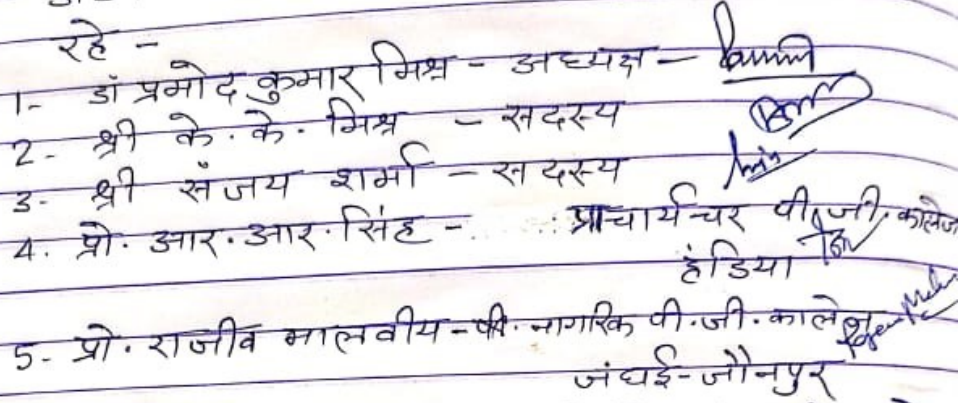 रहे -
1- डॉ प्रमोद कुमार मिश्र - अध्यक्ष -
2- श्री के. के. मिश्र - सदस्य
3- श्री संजय शर्मा - सदस्य
4. प्रो. आर. आर. सिंह - प्राचार्यचर पी. जी. कालेज
हंडिया
5- प्रो. राजीव मालवीय - नागरिक पी. जी. कालेज
जंघई - जौनपुर